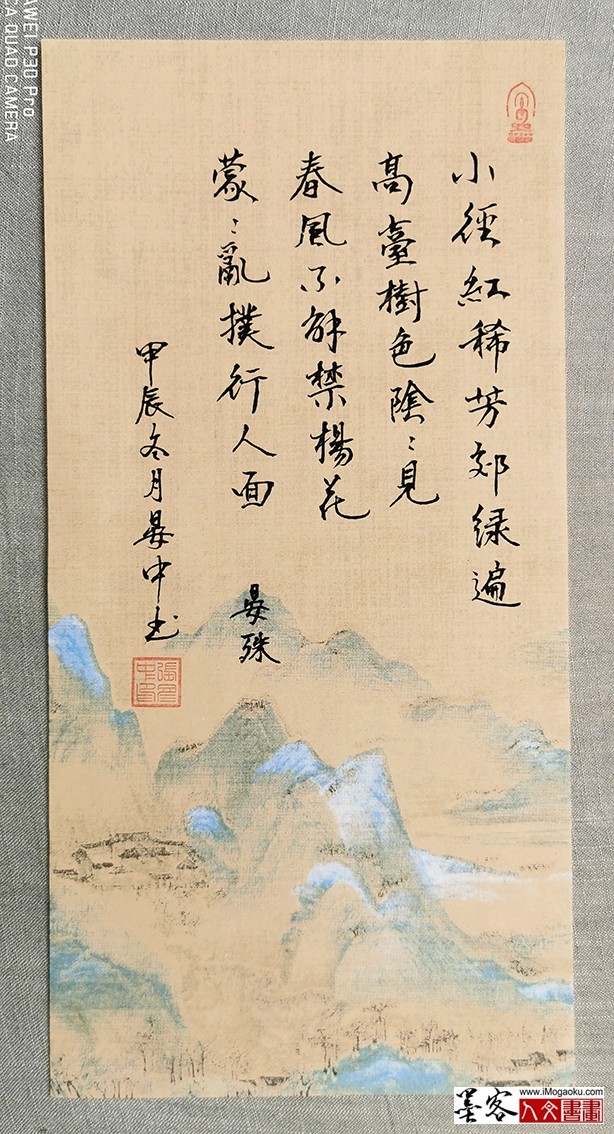 小徑紅稀芳郊綠遍
高臺樹色陰〻見
春風不解禁楊花
蒙〻亂撲行人面
晏殊
甲辰冬月晏中书
HUAWEI P30 Pro
LEICA QUAD CAMERA
www.iMogaoku.com
墨客
人文書畫